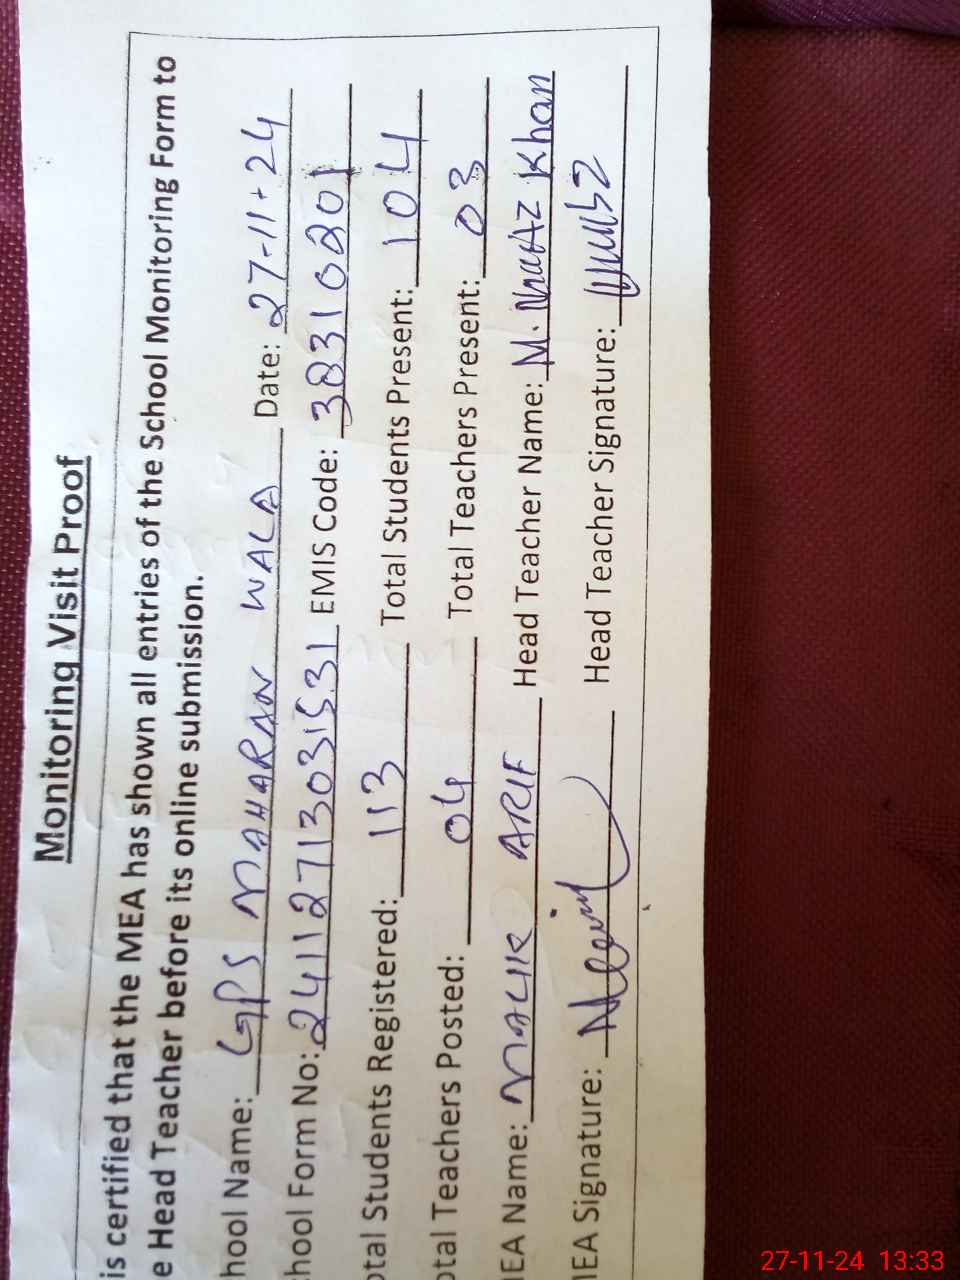 Monitoring Visit Proof
is certified that the MEA has shown all entries of the School Monitoring Form to
e Head Teacher before its online submission.
hool Name: GPS MAHARAN WALA Date: 27-11-24
hool Form No: 24112713031531 EMIS Code: 38310201
otal Students Registered: 113 Total Students Present: 104
otal Teachers Posted: 04 Total Teachers Present: 03
MEA Name: MALIK ARIF Head Teacher Name: M. Nawaz Khan
MEA Signature: Head Teacher Signature:
27-11-24 13:33